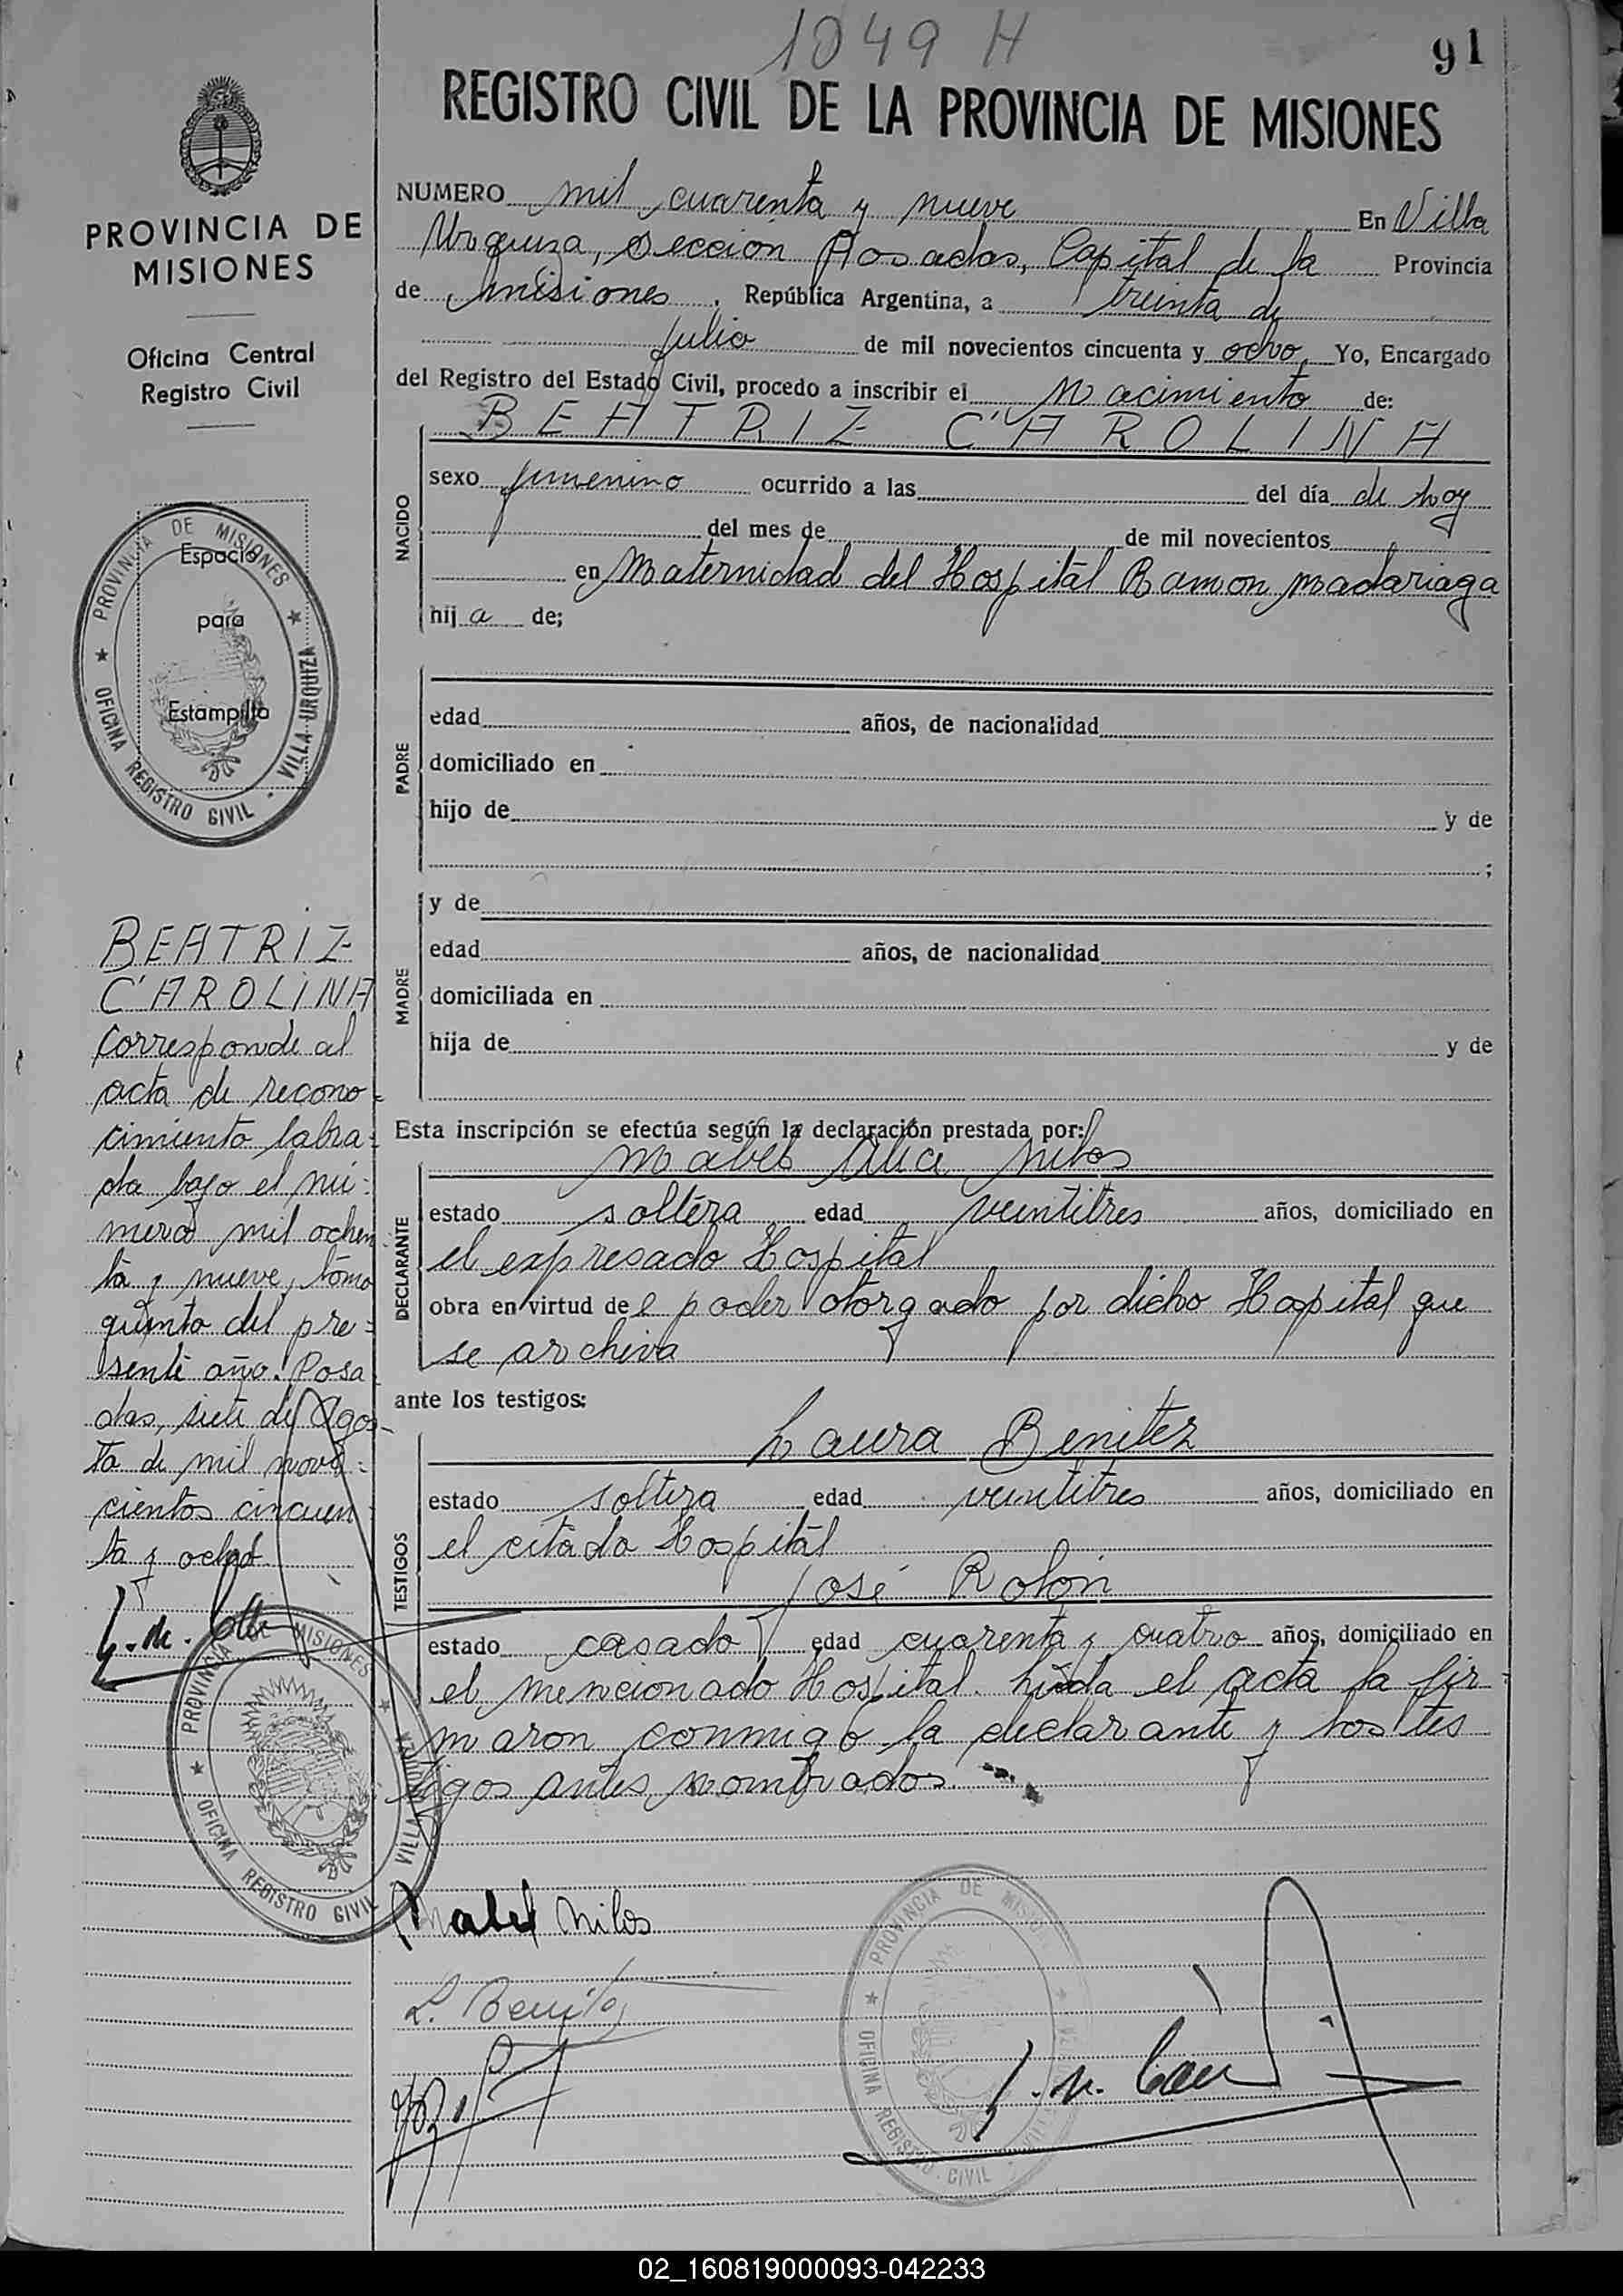 1049 H
91
REGISTRO CIVIL DE LA PROVINCIA DE MISIONES
PROVINCIA DE
MISIONES
Oficina Central
Registro Civil
PROVINCIA DE MISIONES
OFICINA REGISTRO CIVIL · VILLA URQUIZA
Espacio
para
Estampilla
BEATRIZ
CAROLINA
corresponde al
acta de recono=
cimiento labra=
da bajo el nú=
mero mil ochen
ta y nueve, tomo
quinto del pre=
sente año. Posa
das, siete de Agos-
to de mil nove=
cientos cincuen
ta y ocho
PROVINCIA DE MISIONES
OFICINA REGISTRO CIVIL VILLA URQUIZA
NUMERO mil cuarenta y nueve En Villa
Urquiza, sección Posadas, Capital de la Provincia
de Misiones, República Argentina, a treinta de
julio de mil novecientos cincuenta y ocho, Yo, Encargado
del Registro del Estado Civil, procedo a inscribir el Nacimiento de:
NACIDO
BEATRIZ CAROLINA
sexo femenino ocurrido a las del día de hoy
del mes de de mil novecientos
en Maternidad del Hospital Ramon Madariaga
hij a de;
PADRE
edad años, de nacionalidad
domiciliado en
hijo de y de
;
MADRE
y de
edad años, de nacionalidad
domiciliada en
hija de y de
Esta inscripción se efectúa según la declaración prestada por:
DECLARANTE
Mabel Alice Milos
estado soltera edad veintitres años, domiciliado en
el expresado Hospital
obra en virtud de l poder otorgado por dicho Hospital que
se archiva
ante los testigos:
TESTIGOS
Laura Benitez
estado soltera edad veintitres años, domiciliado en
el citado Hospital
José Rolón
estado casado edad cuarenta y cuatro años, domiciliado en
el mencionado Hospital. Leída el acta la fir=
maron conmigo la declarante y los tes
tigos antes nombrados.
Mabel Milos
L. Benitez
PROVINCIA DE MISIONES
OFICINA REGISTRO CIVIL VILLA
02_160819000093-042233